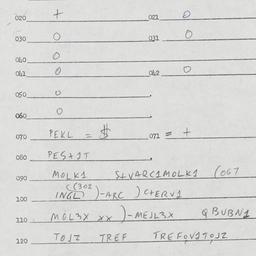 020 + 021 0
030 0 031 0
040 0
041 0 042 0
050 0
060 0
070 PEKL = $ 071 = +
080 PES+1T
090 MOLK1 S+VARC1MOLK1 (067
((302
100 INGL) )-ARC )C+ERV1
110 MGL3X XX )-MEJL3X QBUBN1
120 TOJZ TREF TREFQV1TOJZ